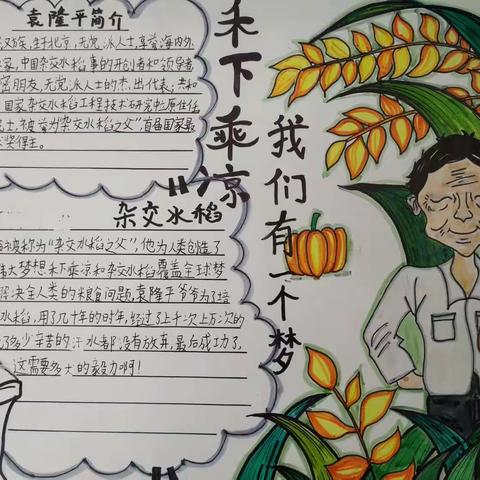 袁隆平简介
汉族,生于北京,无党派人士,享誉海内外
家,中国杂交水稻事的开创者和领导者
密朋友,无党派人士的杰出代表,共和
国家杂交水稻工程技术研究忠原任任
士,被誉为"杂交水稻之父"首届国家最
奖得主。
杂交水稻
被称为"杂交水稻之父",他为人类创造了
大梦想禾下乘凉和杂交水稻覆盖全球梦
解决全人类的粮食问题,袁隆平爷爷为了培
水稻,用了几十年的时年,经过了上千次上万次的
了多少辛苦的汗水都没有放弃,最后成功了,
这需要多大的毅力啊!
禾下乘凉
我们有一个梦